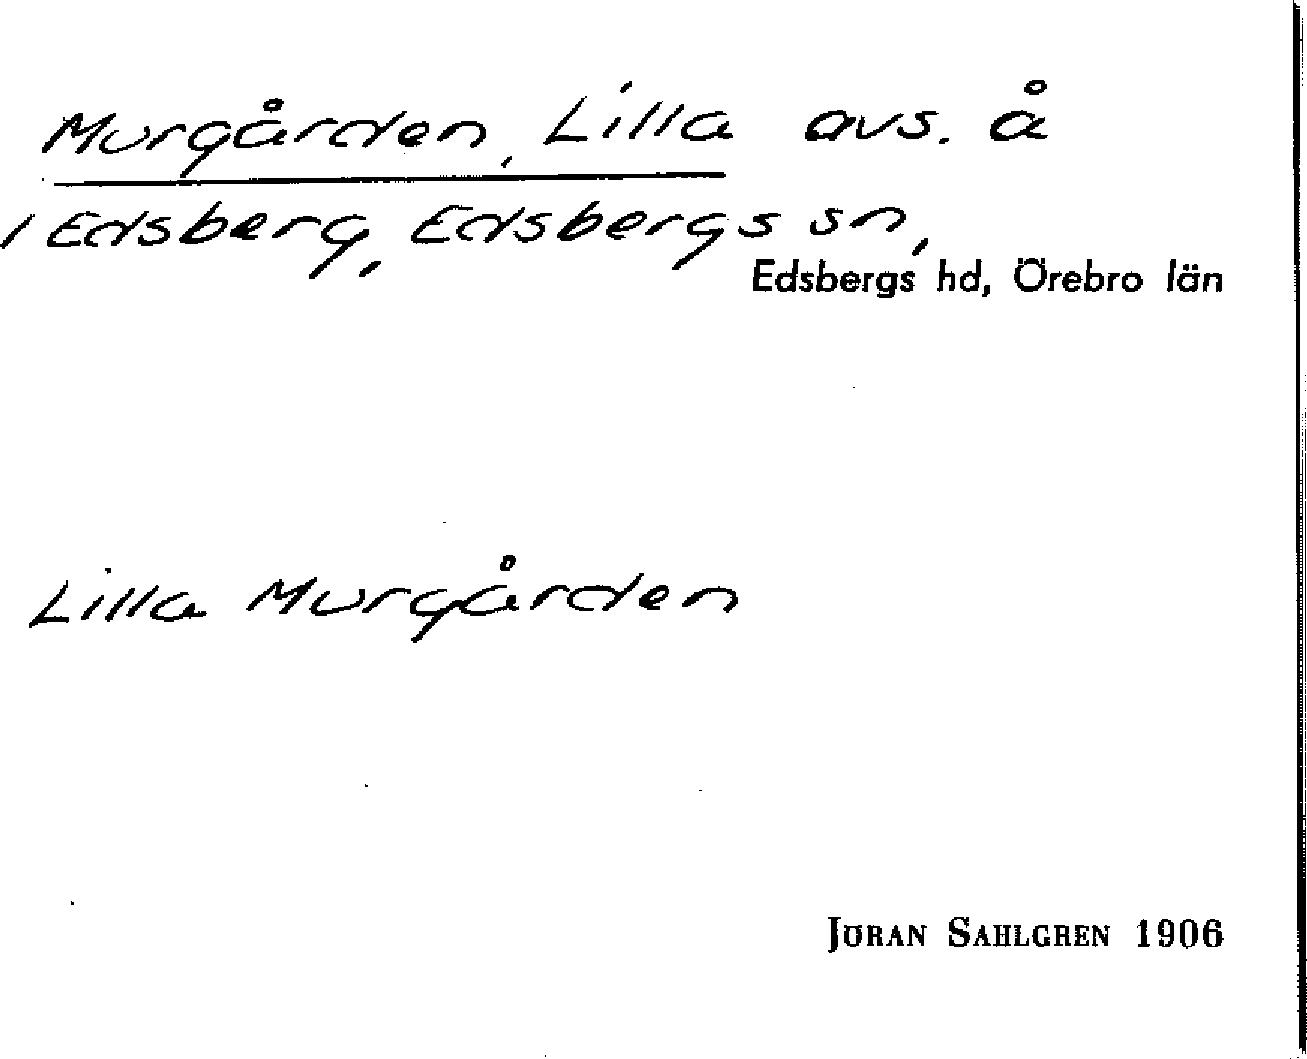 Murgården, Lilla avs. å
1 Edsberg, Edsbergs sn,
Edsbergs hd, Örebro län
Lilla Murgården
JÖRAN SAHLGREN 1906